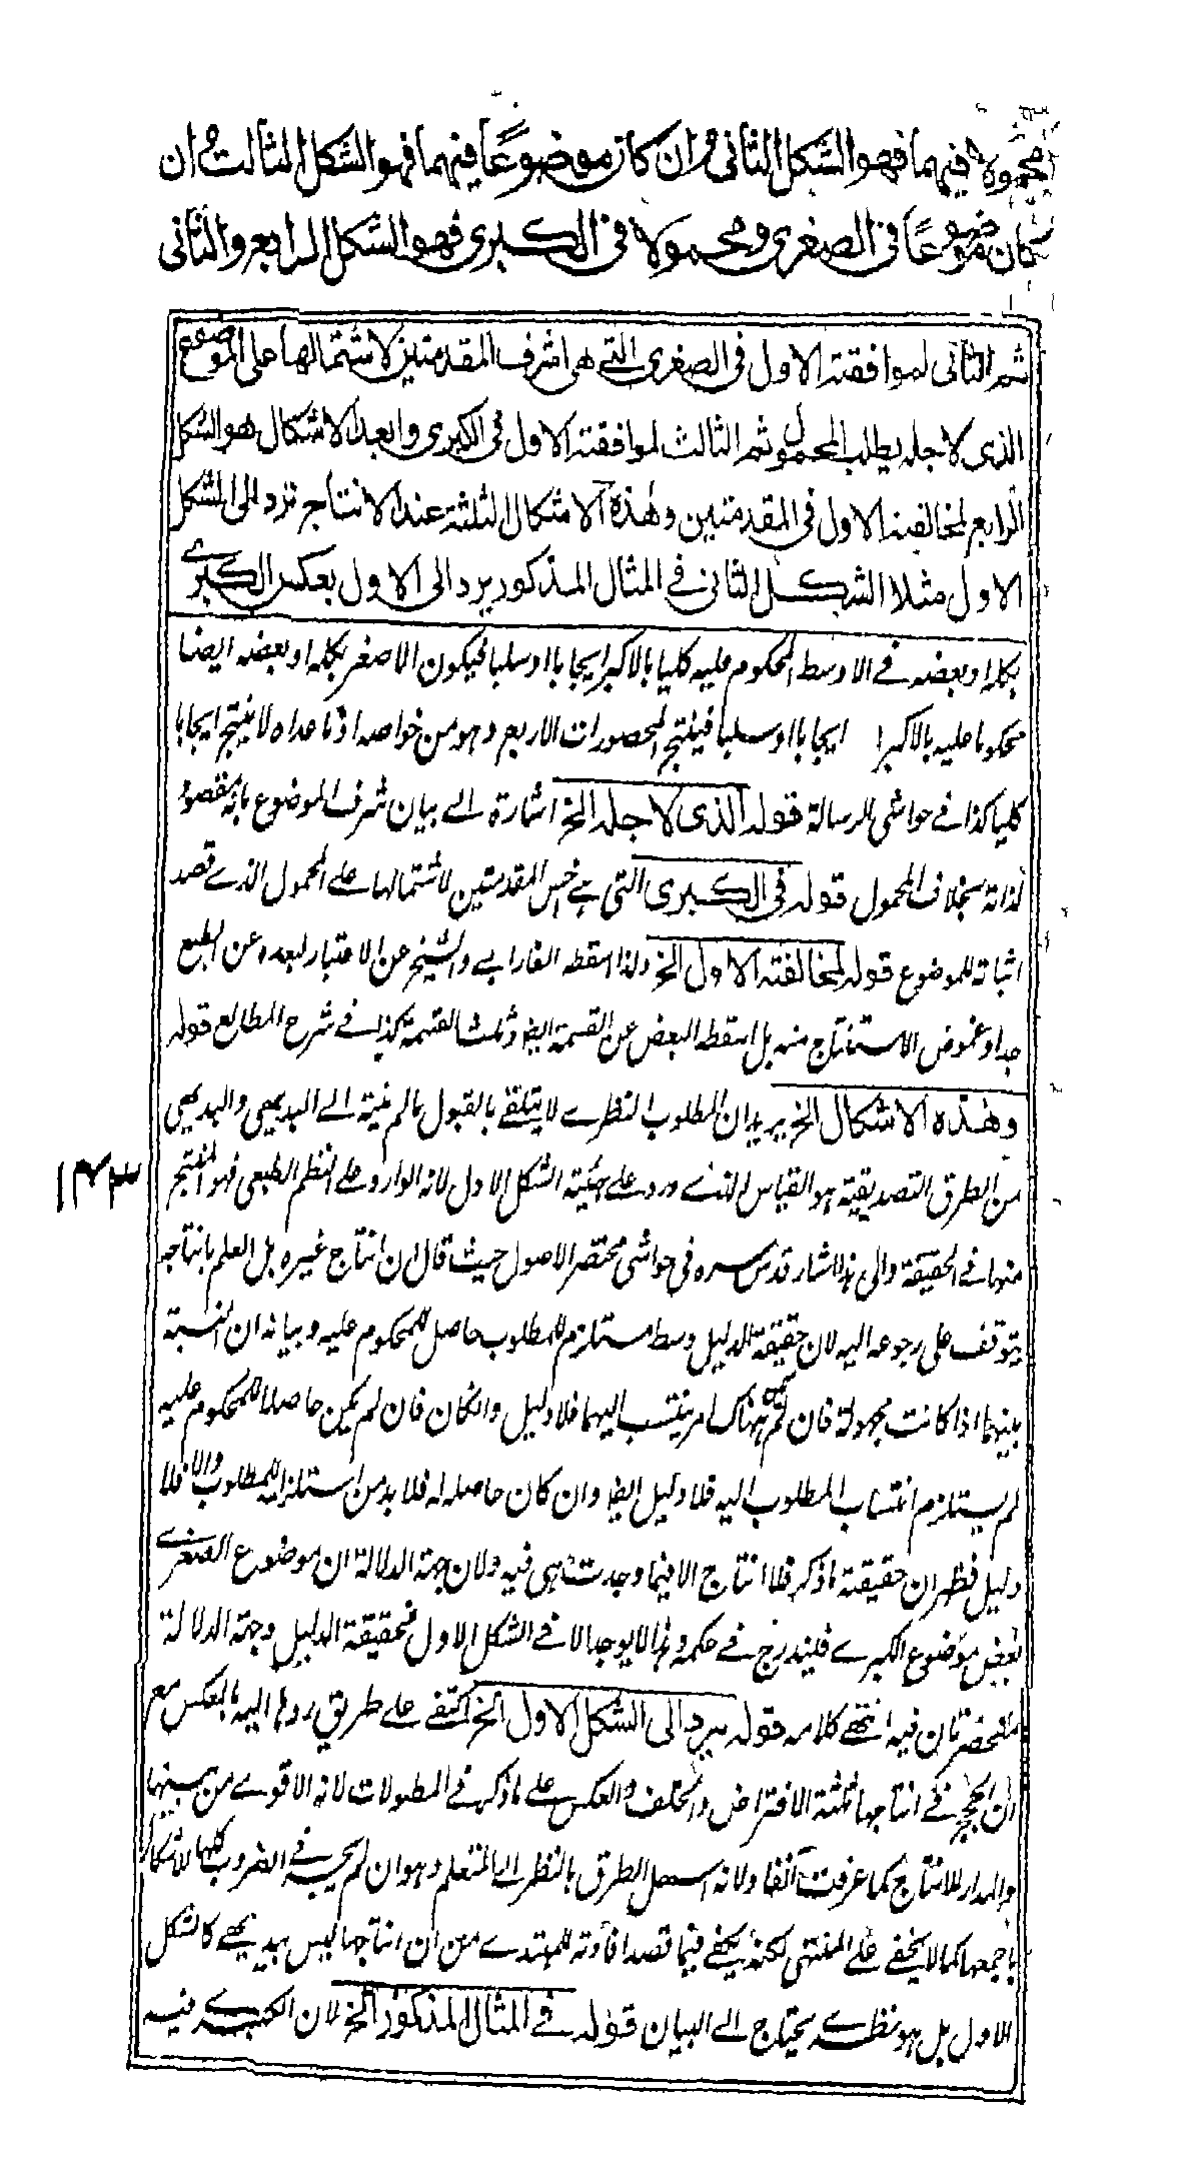 محمولا فيهما فهو الشكل الثانى وان كان موضوعًا فيهما فهو الشكل الثالث وان
كان موضوعًا فى الصغرى ومحمولا فى الكبرى فهو الشكل الرابع والثانى
ثم الثانى لموافقته الاول فى الصغرى التى هى اشرف المقدمتين لاشتمالها على الموضوع
الذى لاجله يطلب المحمول ثم الثالث لموافقته الاول فى الكبرى وابعد الاشكال هو الشكل
الرابع لمخالفته الاول فى المقدمتين وهذه الاشكال الثلثة عند الانتاج ترد الى الشكل
الاول مثلا الشكل الثانى فى المثال المذكور يرد الى الاول بعكس الكبرى
بكله او بعضه فى الاوسط المحكوم عليه كليا بالاكبر ايجابا او سلبا فيكون الاصغر بكله او بعضه ايضا
محكوما عليه بالاكبر ايجابا او سلبا فينتج المحصورات الاربع وهو من خواصه اذ ما عداه لا ينتج ايجابا
كليا كذا فى حواشى الرسالة قوله الذى لاجله الخ اشارة الى بيان شرف الموضوع بانه مقصود
لذاته بخلاف المحمول قوله فى الكبرى التى هى اخس المقدمتين لاشتمالها على المحمول الذى قصد
اثباته للموضوع قوله لمخالفته الاول الخ ولذا اسقطه الفارابى والشيخ عن الاعتبار لبعده عن الطبع
جدا وغموض الاستنتاج منه بل اسقطه البعض عن القسمة ايضا وثلث القسمة كذا فى شرح المطالع قوله
وهذه الاشكال الخ يريد ان المطلوب النظرى لا يتلقى بالقبول ما لم ينته الى البديهى والبديهى
من الطرق التصديقية هو القياس الذى ورد على هيئة الشكل الاول لانه الوارد على النظم الطبعى فهو المنتج
١٤٣
منها فى الحقيقة والى هذا اشار قدس سره فى حواشى مختصر الاصول حيث قال ان انتاج غيره بل العلم بانتاجه
يتوقف على رجوعه اليه لان حقيقة الدليل وسط مستلزم للمطلوب حاصل للمحكوم عليه وبيانه ان النسبة
بينهما اذا كانت مجهولة فان لم يكن هناك امر ينتسب اليهما فلا دليل وان كان فان لم يكن حاصلا للمحكوم عليه
لم يستلزم انتساب المطلوب اليه فلا دليل ايضا وان كان حاصلا له فلا بد من استلزامه للمطلوب والا فلا
دليل فظهر ان حقيقته ما ذكر فلا انتاج الا فيما وجدت هى فيه ولان جهة الدلالة ان موضوع الصغرى
بعض موضوع الكبرى فليندرج فى حكمه وهذا لا يوجد الا فى الشكل الاول فحقيقة الدليل وجهة الدلالة
منحصرتان فيه انتهى كلامه قوله يرد الى الشكل الاول الخ اكتفى على طريق ردها اليه بالعكس مع
ان الحجج فى انتاجها ثلثة الافتراض والخلف والعكس على ما ذكر فى المطولات لانه الاقوى من بينها
والمدار للانتاج كما عرفت آنفا ولانه اسهل الطرق بالنظر الى المتعلم وهو وان لم يجر فى الضروب كلها للاشكال
باجمعها كما لا يخفى على المنتهى لكنه يكفى فيما قصد افادته للمبتدى من ان انتاجها ليس ببديهى كالشكل
الاول بل هو نظرى يحتاج الى البيان قوله فى المثال المذكور الخ لان الكبرى فيه